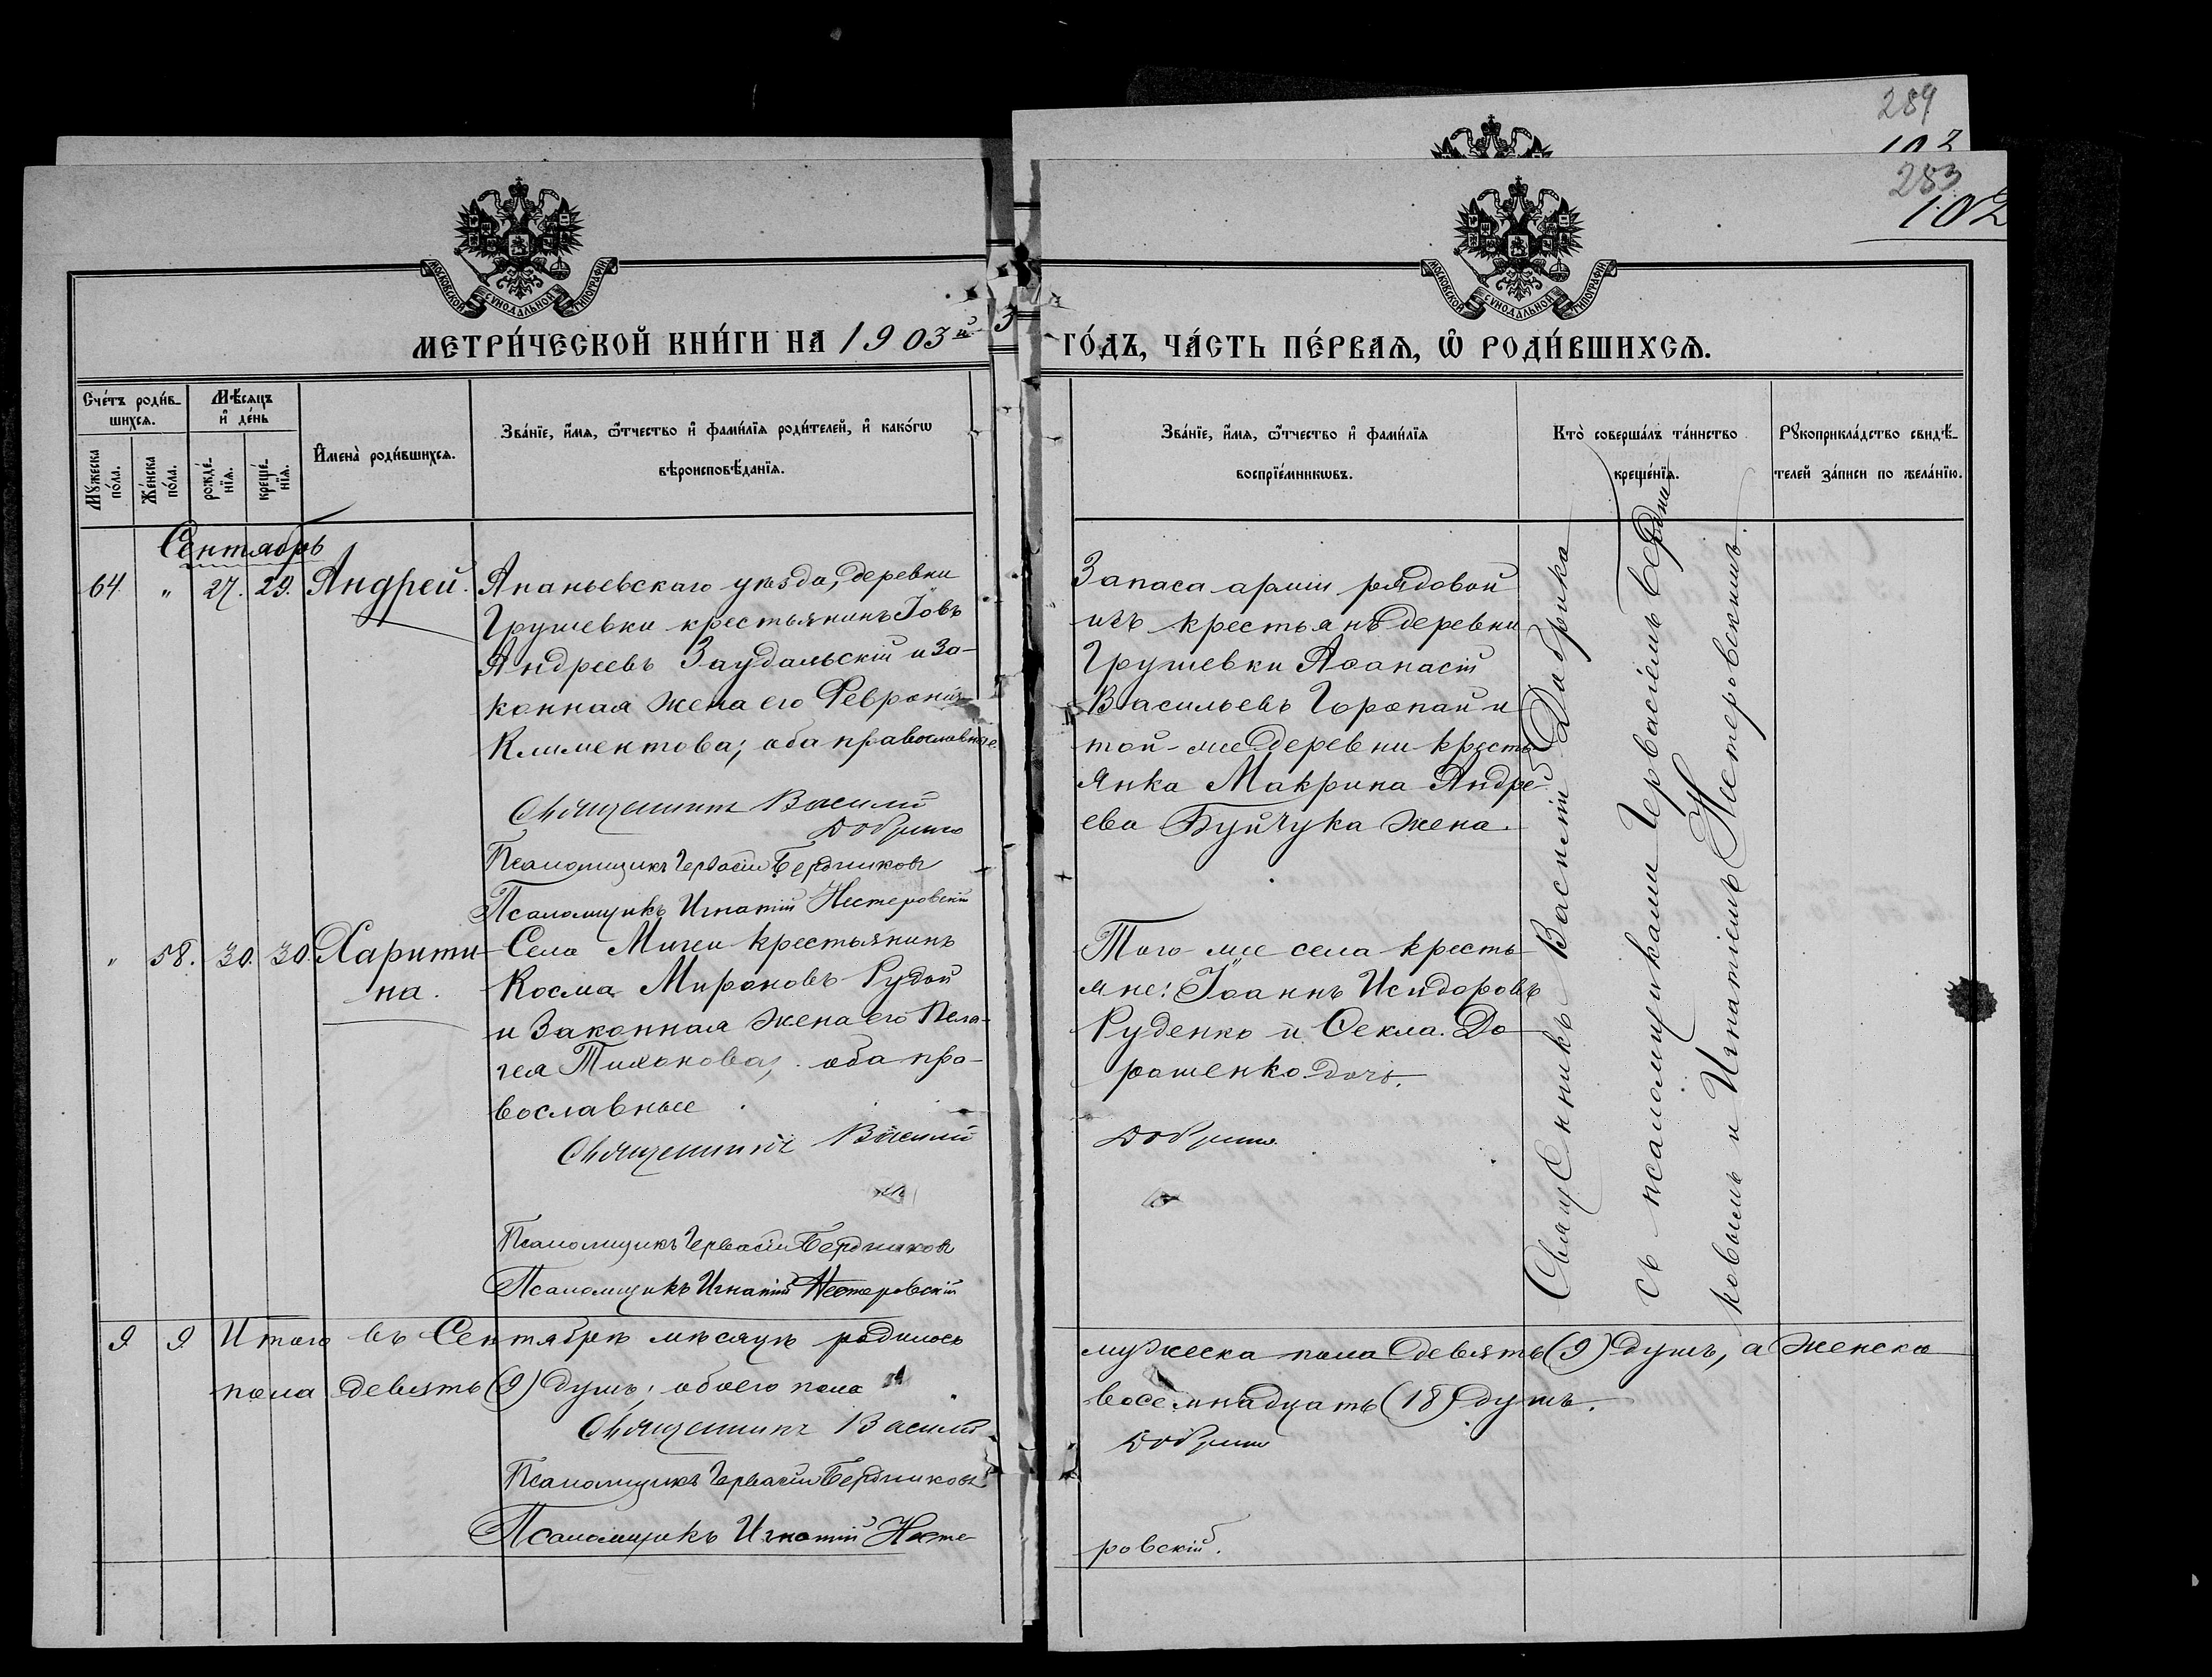 289
102
283
102
МОСКОВСКОЙ СѴНОДАЛЬНОЙ ТИПОГРАФІИ
МОСКОВСКОЙ СѴНОДАЛЬНОЙ ТИПОГРАФІИ
МЕТРИ́ЧЕСКОЙ КНИ́ГИ НА 1903й
ГО́ДЪ, ЧА́СТЬ ПЕ́РВАѦ, Ѡ҆ РОДИ́ВШИХСѦ.
Сче́тъ роди́в-
шихсѧ.
Мꙋ́жеска по́ла.
Же́нска по́ла.
Мѣ́сѧцъ
и҆ де́нь
рожде́-нїѧ.
креще́-нїѧ.
И҆мена̀ роди́вшихсѧ.
Зва́нїе, и҆́мѧ, ѻ҆́тчество и҆ фами́лїѧ роди́телей, и҆ како́гѡ
вѣроисповѣ́данїѧ.
Зва́нїе, и҆́мѧ, ѻ҆́тчество и҆ фами́лїѧ
воспрїе́мникѡвъ.
Кто̀ соверша́лъ та́инство
креще́нїѧ.
Рꙋкоприкла́дство свидѣ́-
телей за́писи по жела́нїю.
Сентябрь
64 " 27. 29. Андрей.
Ананьевскаго уѣзда, деревни
Грушевки крестьянинъ Іовъ
Андреевъ Заудальскій и за-
конная жена его Феврония
Климентова; оба православные
Священникъ Василій
Добрика
Псаломщикъ Гервасій Бердниковъ
Псаломщикъ Игнатій Нестеровскій
Запаса арміи рядовой
изъ крестьянъ деревни
Грушевки Аѳанасій
Васильевъ Горопай и
той-же деревни кресть-
янка Макрина Андре-
ева Буйчука жена.
" 58. 30. 30. Харити-
на.
Села Мигеи крестьянинъ
Косма Мироновъ Рудой
и законная жена его Пела-
гея Тихонова; оба пра-
вославные
Священникъ Василій
Псаломщикъ Гервасій Бердниковъ
Псаломщикъ Игнатій Нестеровскій
Того-же села кресть-
яне: Іоаннъ Исидоровъ
Руденко и Ѳекла До-
рошенко дочь.
Добрика
Священникъ Василій Добрика
съ псаломщиками Гервасіемъ Бердни-
ковымъ и Игнатіемъ Нестеровскимъ.
9 9 Итого въ Сентябрѣ мѣсяцѣ родилось
мужеска пола девять (9) душъ, а женска
пола девять (9) душъ; обоего пола
восемнадцать (18) душъ.
Священникъ Василій
Добрика
Псаломщикъ Гервасій Бердниковъ
Псаломщикъ Игнатій Несте-
ровскій.